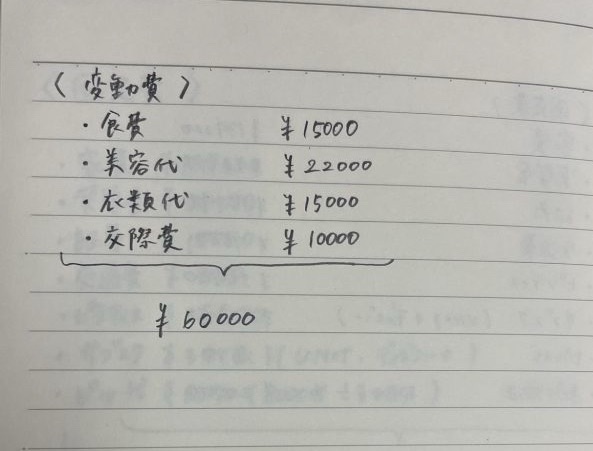 〈 変動費 〉
・食費 ¥15000
・美容代 ¥22000
・衣類代 ¥15000
・交際費 ¥10000
¥60000